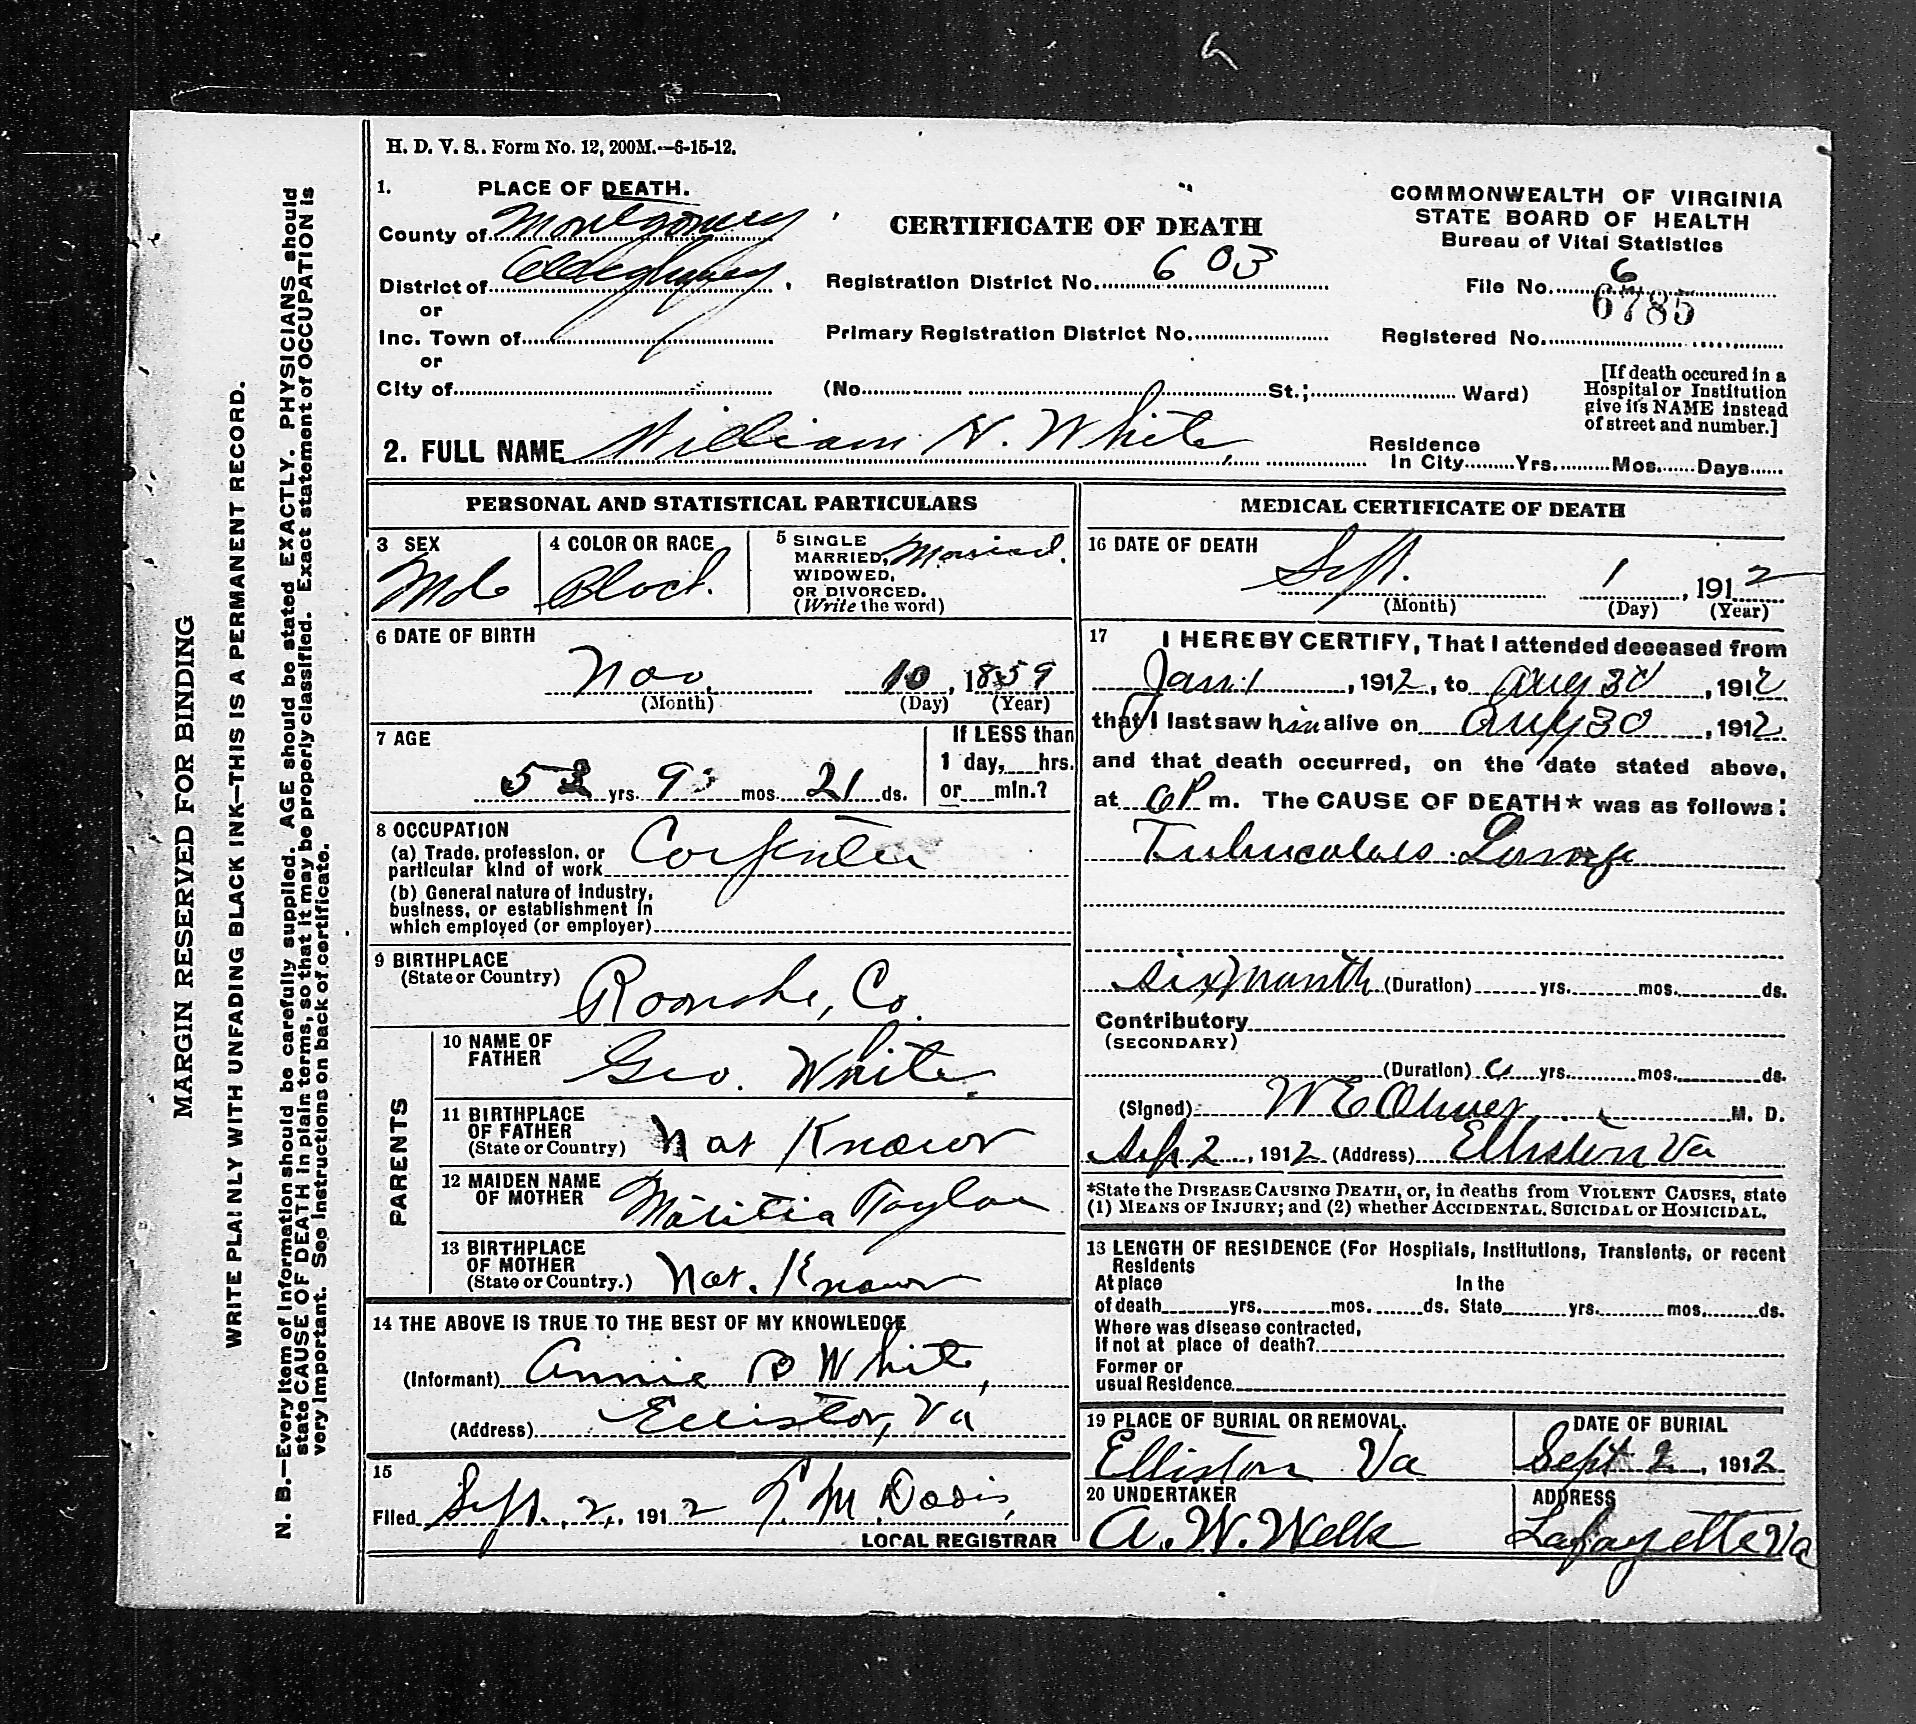 H. D. V. S.. Form No. 12, 200M.—6-15-12.
1. PLACE OF DEATH.
County of Montgomery
District of Alleghany
or
Inc. Town of
or
City of
CERTIFICATE OF DEATH
Registration District No. 603
Primary Registration District No.
(No. St.; Ward)
COMMONWEALTH OF VIRGINIA
STATE BOARD OF HEALTH
Bureau of Vital Statistics
File No. 6
6785
Registered No.
[If death occured in a
Hospital or Institution
give its NAME instead
of street and number.]
2. FULL NAME William H. White,
Residence
In City Yrs. Mos. Days
PERSONAL AND STATISTICAL PARTICULARS
3 SEX
4 COLOR OR RACE
Black.
5 SINGLE
MARRIED, Married.
WIDOWED,
OR DIVORCED.
(Write the word)
6 DATE OF BIRTH
Nov. 10, 1859
(Month) (Day) (Year)
7 AGE
yrs. 9 mos. 21 ds.
If LESS than
1 day, hrs.
or min.?
8 OCCUPATION
(a) Trade, profession, or
particular kind of work Carpenter
(b) General nature of Industry,
business, or establishment in
which employed (or employer)
9 BIRTHPLACE
(State or Country) Roanoke, Co.
PARENTS
10 NAME OF
FATHER Geo. White.
11 BIRTHPLACE
OF FATHER
(State or Country) Not Known
12 MAIDEN NAME
OF MOTHER Taylor
13 BIRTHPLACE
OF MOTHER
(State or Country.) Not. Known
14 THE ABOVE IS TRUE TO THE BEST OF MY KNOWLEDGE
(Informant) Annie B White,
(Address) Elliston, Va
15
Filed Sept. 2, 1912 M. Davis,
LOCAL REGISTRAR
MEDICAL CERTIFICATE OF DEATH
16 DATE OF DEATH
Sept. 1, 1912
(Month) (Day) (Year)
17 I HEREBY CERTIFY, That I attended deceased from
Jan 1, 1912, to Aug 30, 1912
that I last saw him alive on Aug 30, 1912
and that death occurred, on the date stated above,
at 6 P m. The CAUSE OF DEATH* was as follows:
Tuberculosis Lungs
six month (Duration) yrs. mos. ds.
Contributory
(SECONDARY)
(Duration) yrs. mos. ds.
(Signed) W E Oliver M. D.
Sep 2, 1912 (Address) Elliston Va
*State the DISEASE CAUSING DEATH, or, in deaths from VIOLENT CAUSES, state
(1) MEANS OF INJURY; and (2) whether ACCIDENTAL, SUICIDAL or HOMICIDAL.
13 LENGTH OF RESIDENCE (For Hospitals, Institutions, Transients, or recent
Residents
At place In the
of death yrs. mos. ds. State yrs. mos. ds.
Where was disease contracted,
If not at place of death?
Former or
usual Residence
19 PLACE OF BURIAL OR REMOVAL.
Elliston Va
DATE OF BURIAL
Sept 2, 1912
20 UNDERTAKER
A. W. Wells
ADDRESS
Lafayette Va
MARGIN RESERVED FOR BINDING
WRITE PLAINLY WITH UNFADING BLACK INK—THIS IS A PERMANENT RECORD.
N. B.—Every item of information should be carefully supplied. AGE should be stated EXACTLY. PHYSICIANS should
state CAUSE OF DEATH in plain terms, so that it may be properly classified. Exact statement of OCCUPATION is
very important. See instructions on back of certificate.